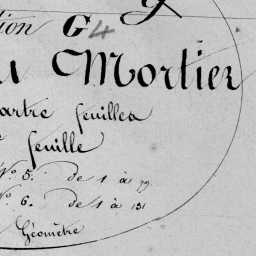 tion G 4
Mortier
feuilles
feuille
N° 5. de 1 à 79
N° 6. de 1 à 131
Géomètre